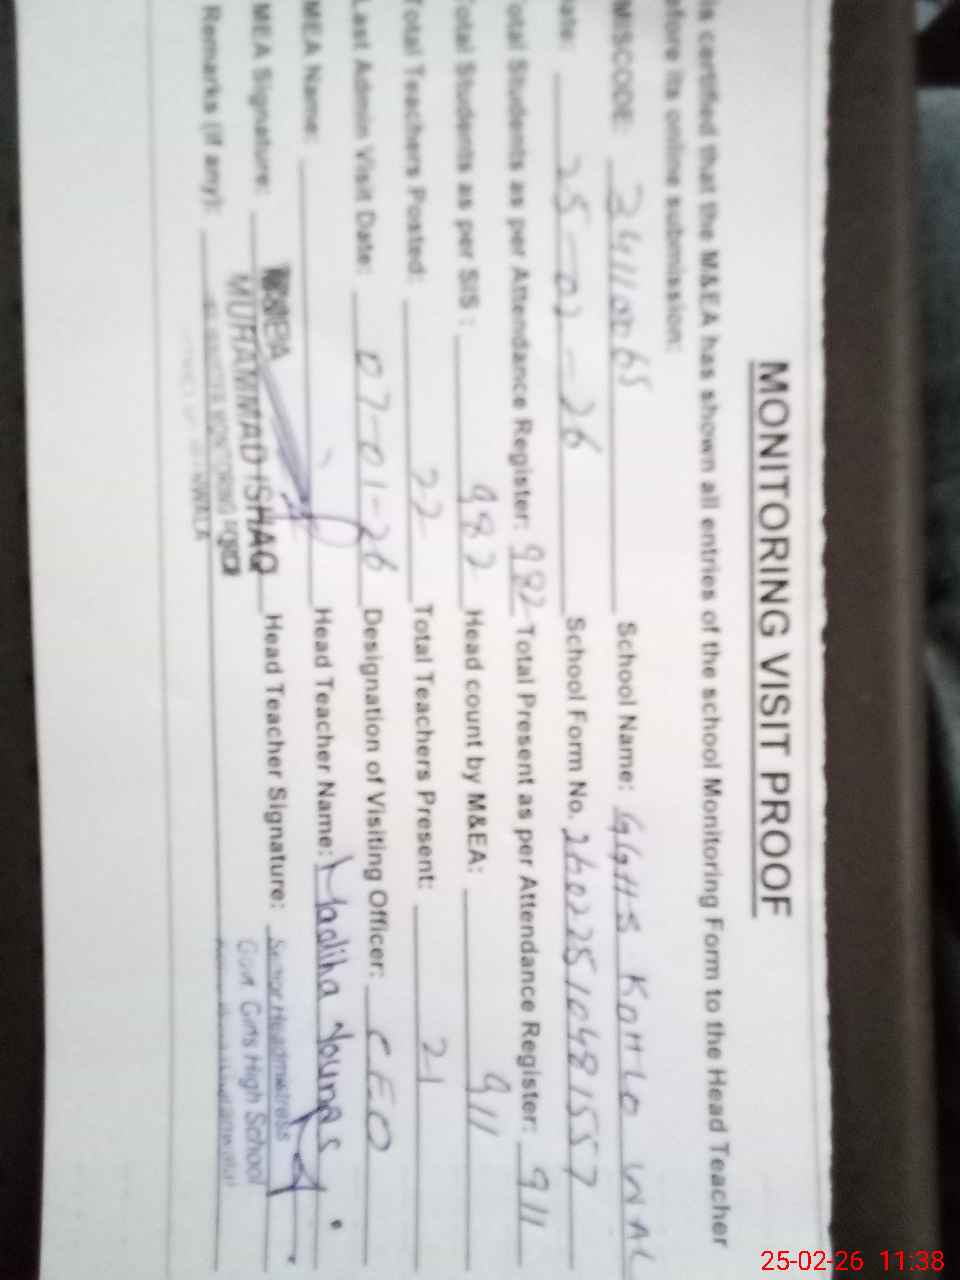 MONITORING VISIT PROOF
is certified that the M&EA has shown all entries of the school Monitoring Form to the Head Teacher
efore its online submission:
MISCODE: School Name: GGHS KOHLO WAL
ate: 25-02-26 School Form No. 26022510481557
otal Students as per Attendance Register: 982 Total Present as per Attendance Register: 911
otal Students as per SIS : 982 Head count by M&EA: 911
Total Teachers Posted: 22 Total Teachers Present: 21
Last Admin Visit Date: 07-01-26 Designation of Visiting Officer: CEO
MEA Name: Head Teacher Name: Madiha Younas
MEA Signature: MUHAMMAD ISHAQ Head Teacher Signature: Senior Headmistress
Remarks (if any): Govt. Girls High School
25-02-26 11:38